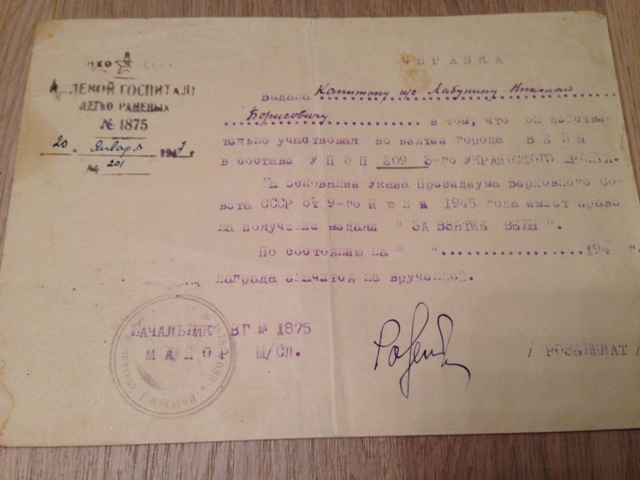 НКО СССР
ПОЛЕВОЙ ГОСПИТАЛЬ
ЛЕГКО РАНЕНЫХ
№ 1875
20 января 194
№ 201
СПРАВКА
Выдана Капитану м/с Лабунину Николаю
Борисовичу в том, что он действи-
тельно участвовал во взятии города ВЕНЫ
в составе УПЭП 209 3-го УКРАИНСКОГО ФРОНТА.
На основании Указа Президиума Верховного Со-
вета СССР от 9-го Июня 1945 года имеет право
на получение медали " ЗА ВЗЯТИЕ ВЕНЫ ".
По состоянию на " "..................194 г.
награда значится не врученной.
НАЧАЛЬНИК ВГ № 1875
МАЙОР М/СЛ.
/ РОЗЕНБЛАТ /